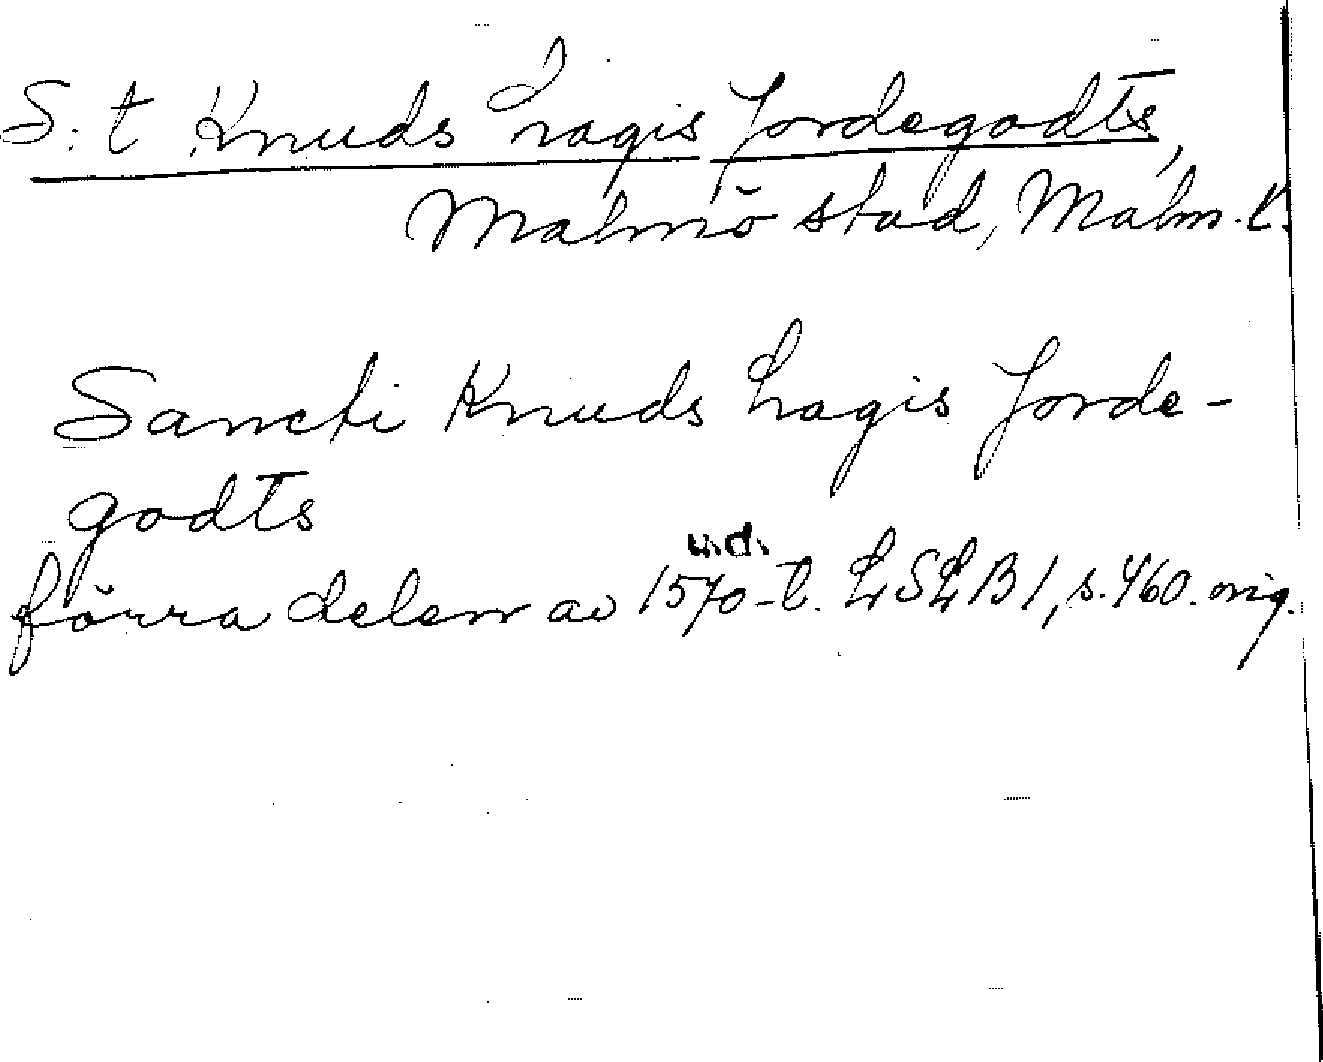 S:t Knuds Lagis Jordegodts,
Malmö stad, Malm. l.
Sancti Knuds Lagis Jorde-
godts
u.d.
förra delen av 1570-t. LSLB 1, s. 460. orig.